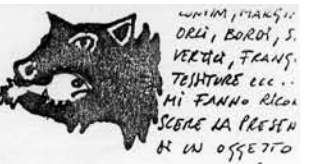 CONFINI, MARGI
ORLI, BORDI, S.
VERTICI, FRANG.
TESSITURE ecc...
MI FANNO RICO
SCERE LA PRESEN
DI UN OGGETTO